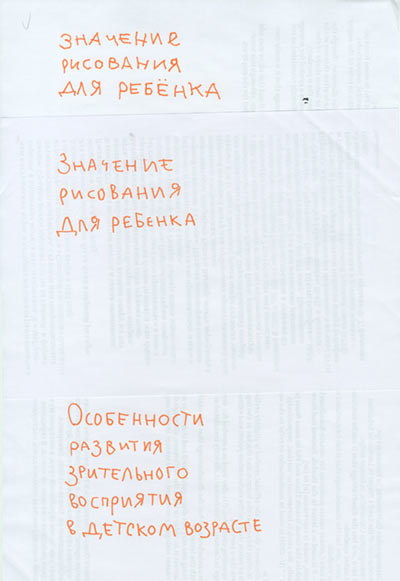 ЗНАЧЕНИЕ
РИСОВАНИЯ
ДЛЯ РЕБЁНКА
ЗНАЧЕНИЕ
РИСОВАНИЯ
ДЛЯ РЕБЕНКА
ОСОБЕННОСТИ
РАЗВИТИЯ
ЗРИТЕЛЬНОГО
ВОСПРИЯТИЯ
В ДЕТСКОМ ВОЗРАСТЕ